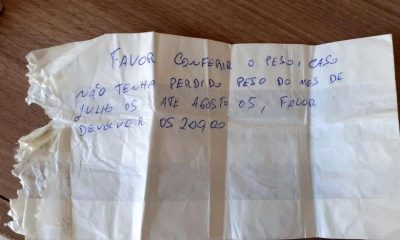 FAVOR CONFERIR O PESO, CASO
NÃO TENHA PERDIDO PESO DO MES DE
JULHO 05 ATE AGOSTO 05, FAVOR
DEVOLVER OS 20900